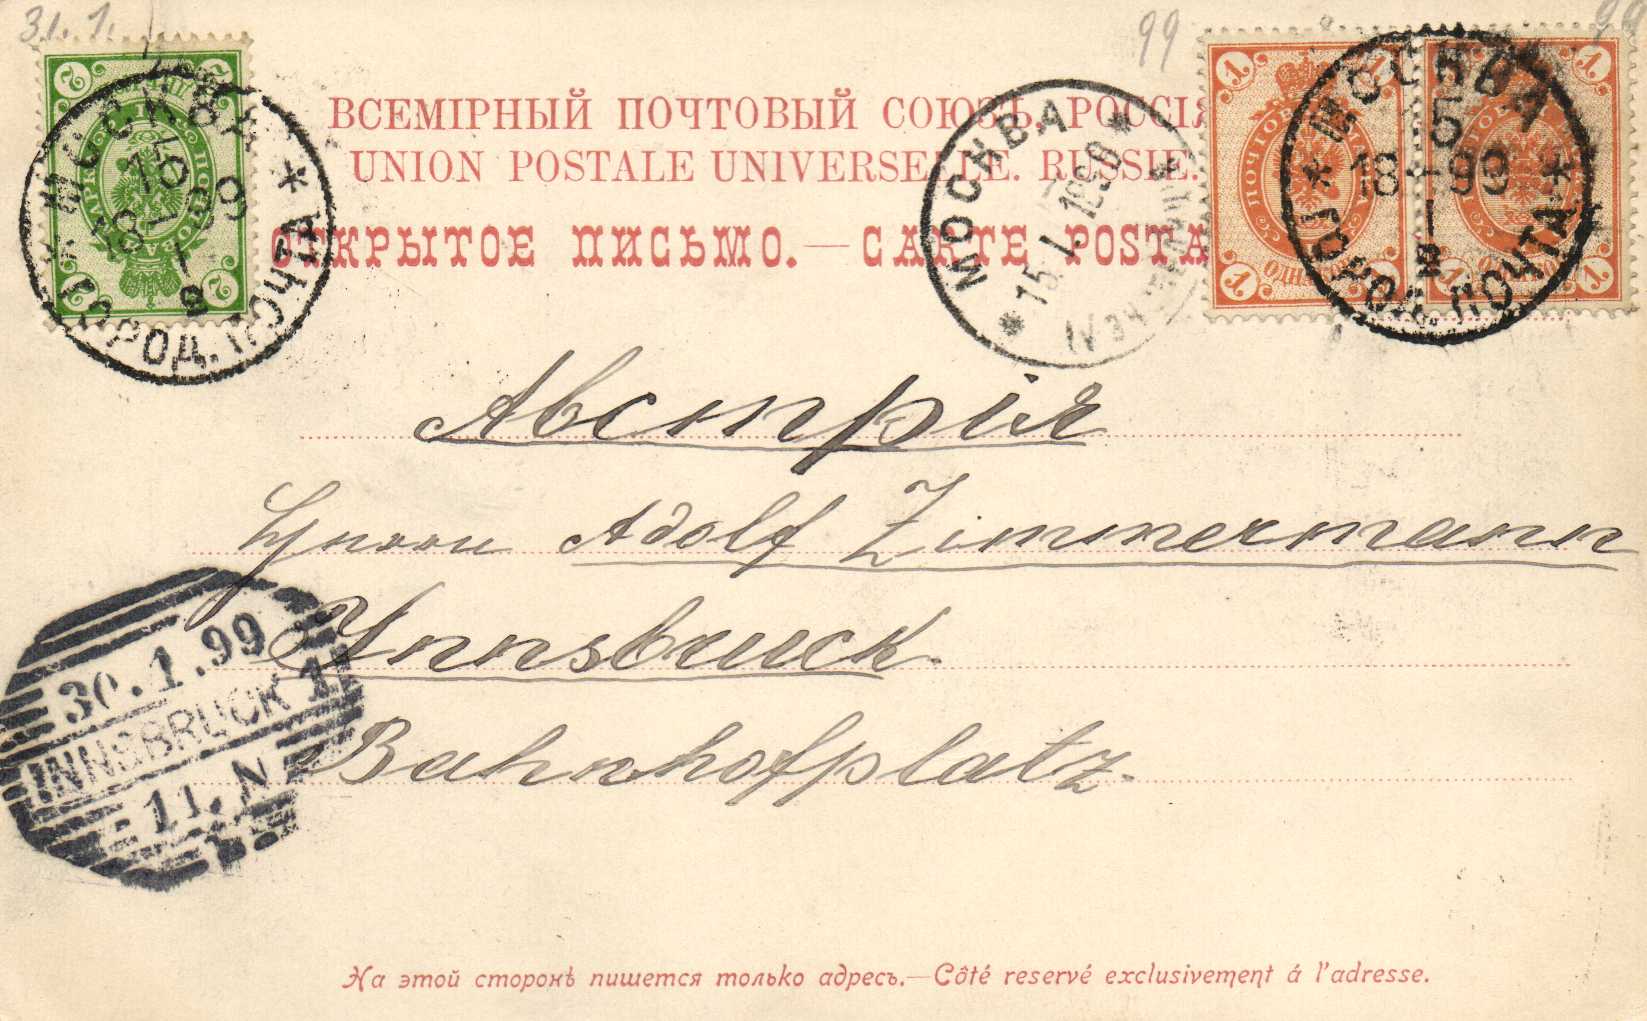 31.1.
99
99
ВСЕМІРНЫЙ ПОЧТОВЫЙ СОЮЗЪ. РОССІЯ
UNION POSTALE UNIVERSELLE. RUSSIE.
ОТКРЫТОЕ ПИСЬМО.—CARTE POSTA
МОСКВА
15
18 99
I
ГОРОД. ПОЧТА
2
2
2
МОСКВА
15.I.1899
1
1
1
1
1
ПОЧТОВАЯ МАРКА
МОСКВА
15
18 99
I
ГОРОД. ПОЧТА
Австрія
Herrn Adolf Zimmermann
Innsbruck.
Bahnhofplatz.
30.1.99
INNSBRUCK 1
11. N
На этой сторонѣ пишется только адресъ.—Côté reservé exclusivement á l'adresse.